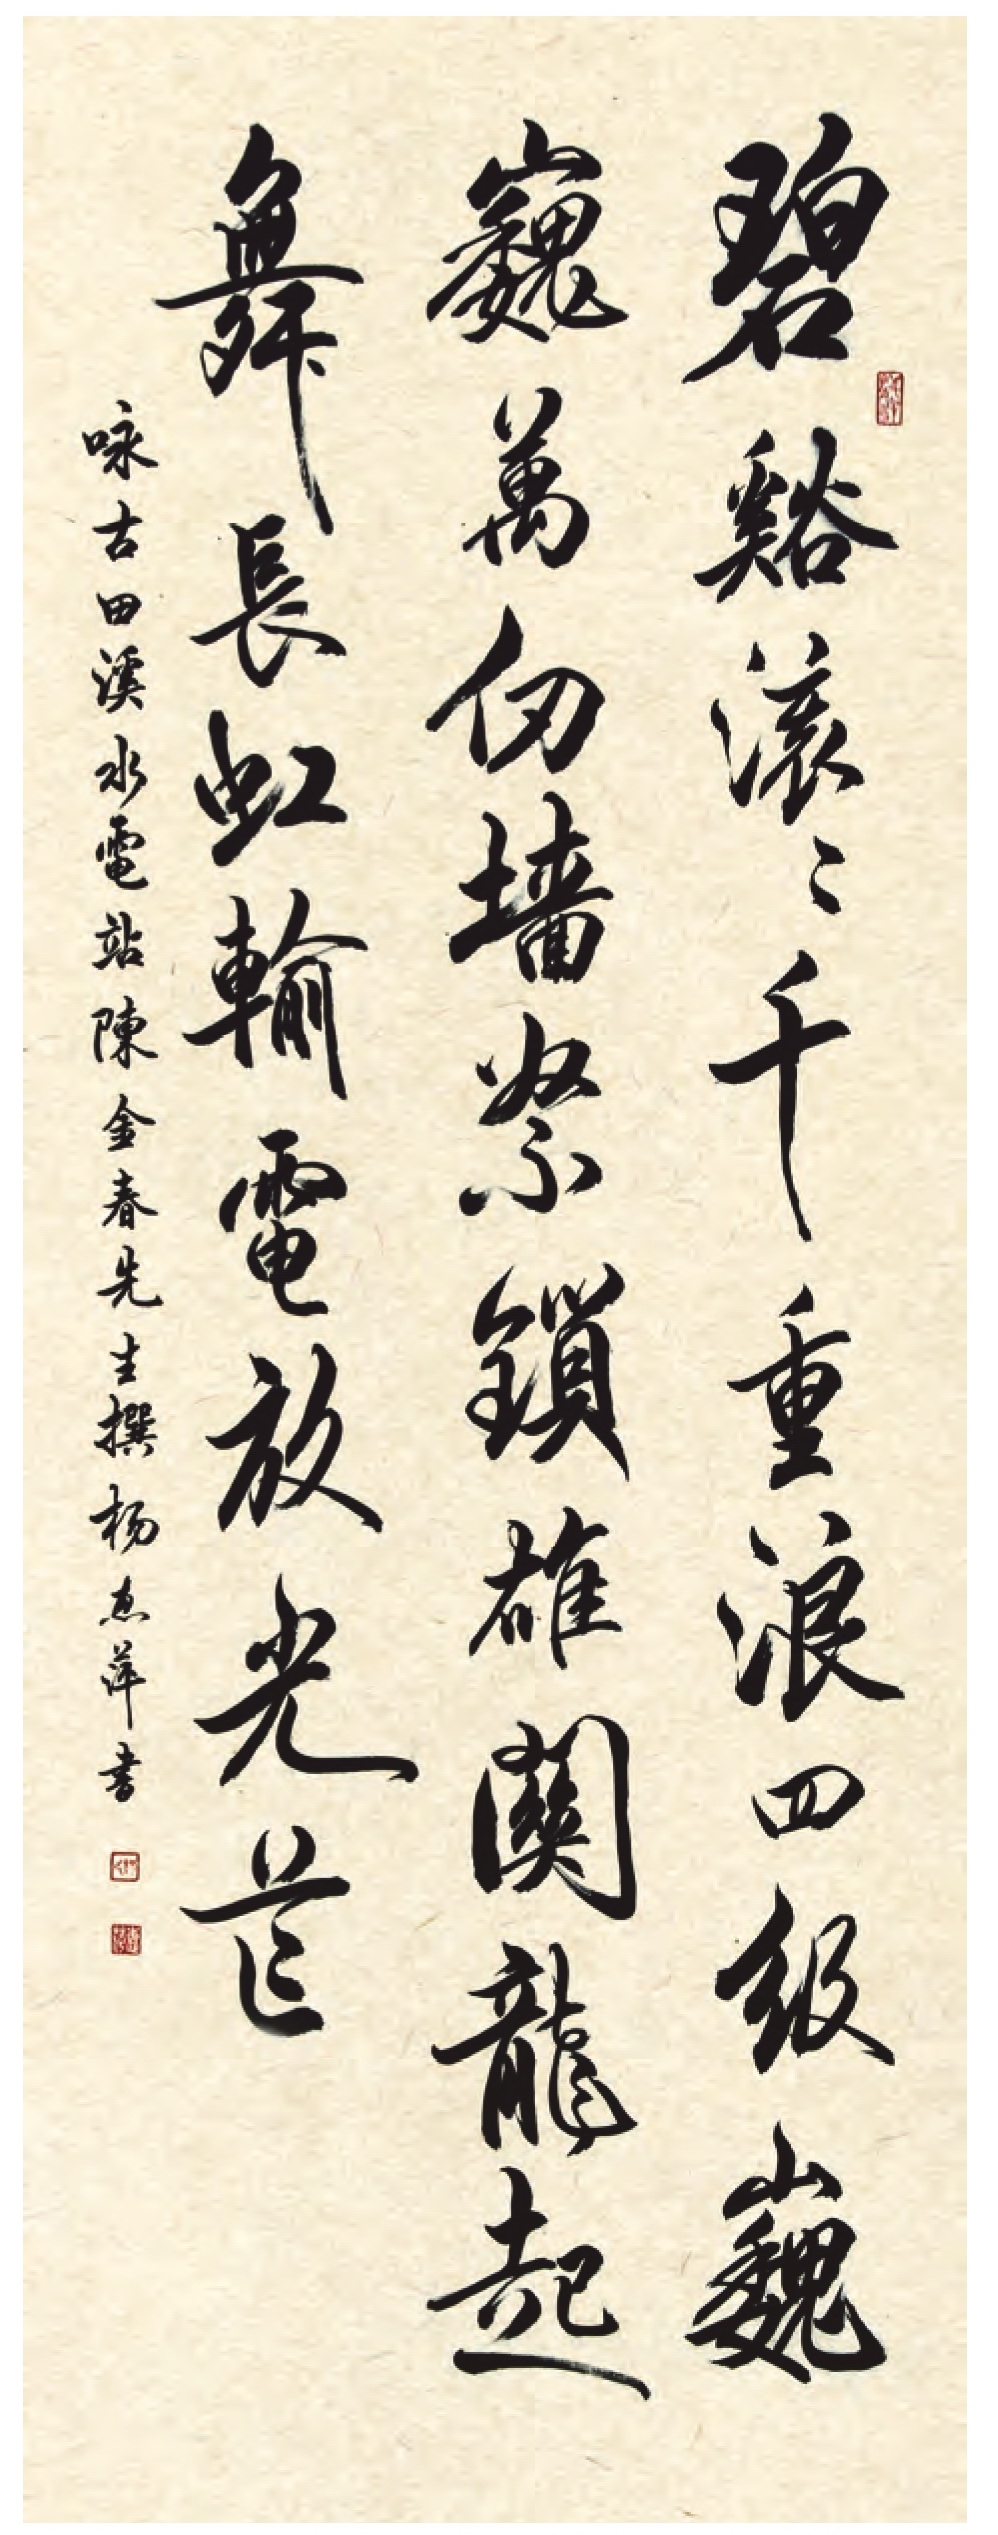 碧谿滚〻千重浪四级巍
巍萬仞墙紧鎖雄関龍起
舞長虹輸電放光芒
咏古田溪水電站陳金春先生撰杨惠萍书